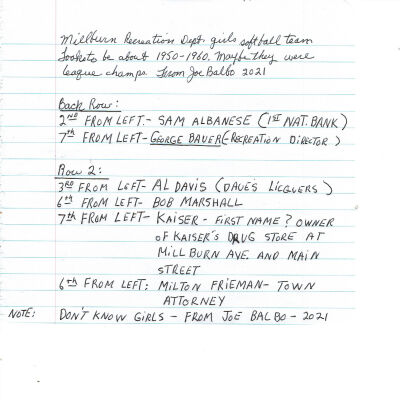 Millburn Recreation Dept. girls softball team
Looks to be about 1950-1960. Maybe they were
league champs. From Joe Balbo 2021
Back Row:
2ND FROM LEFT- SAM ALBANESE (1ST NAT. BANK)
7th FROM LEFT- GEORGE BAUER (-RECREATION DIRECTOR)
Row 2:
3RD FROM LEFT- AL DAVIS (DAVE'S LICQUERS)
6th FROM LEFT- BOB MARSHALL
7th FROM LEFT- KAISER - FIRST NAME? OWNER
OF KAISER'S DRUG STORE AT
MILLBURN AVE. AND MAIN
STREET
6th FROM LEFT: MILTON FRIEMAN- TOWN
ATTORNEY
NOTE: DON'T KNOW GIRLS - FROM JOE BALBO - 2021